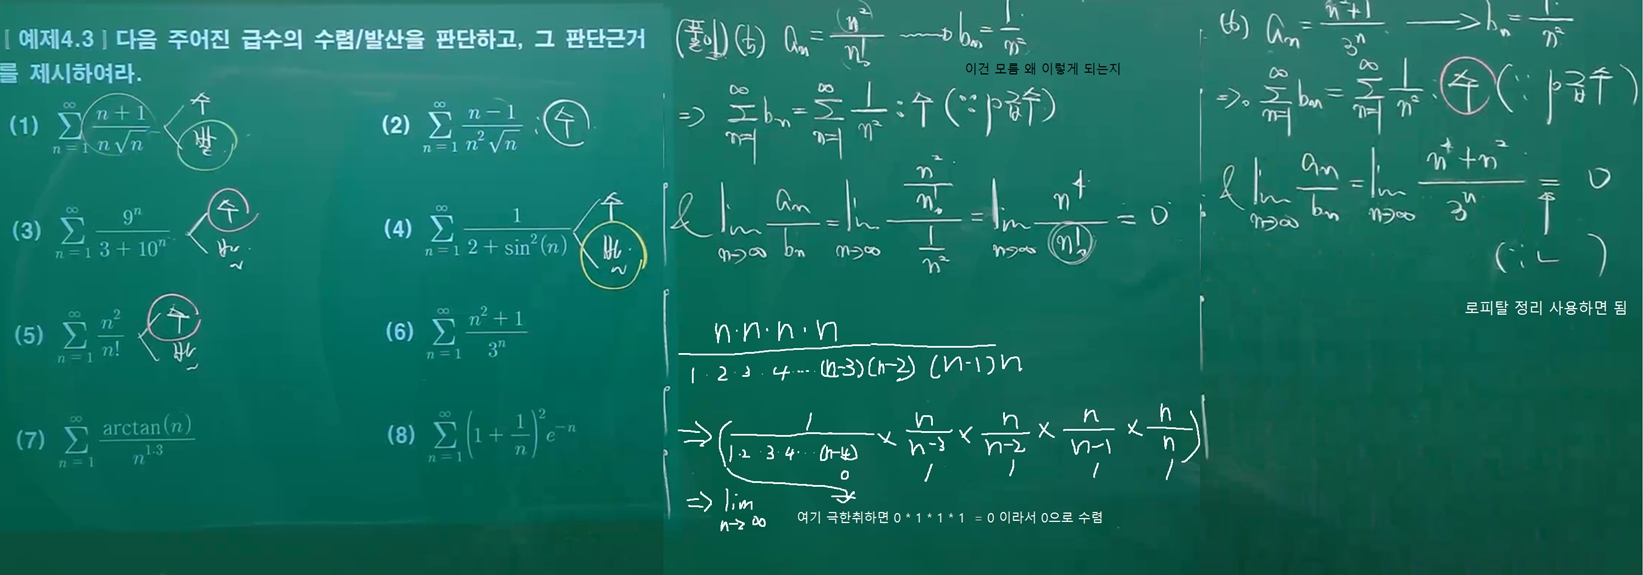 [ 예제4.3 ] 다음 주어진 급수의 수렴/발산을 판단하고, 그 판단근거
를 제시하여라.
(1) \sum_{n=1}^{∞} \frac{n+1}{n\sqrt{n}} 수 발
(2) \sum_{n=1}^{∞} \frac{n-1}{n^2\sqrt{n}} : 수
(3) \sum_{n=1}^{∞} \frac{9^n}{3+10^n} 수 발
(4) \sum_{n=1}^{∞} \frac{1}{2+\sin^2(n)} 수 발
(5) \sum_{n=1}^{∞} \frac{n^2}{n!} 수 발
(6) \sum_{n=1}^{∞} \frac{n^2+1}{3^n}
(7) \sum_{n=1}^{∞} \frac{\arctan(n)}{n^{1.3}}
(8) \sum_{n=1}^{∞} \left(1+\frac{1}{n}\right)^2 e^{-n}
(풀이) (5) a_n = \frac{n^2}{n!} → b_n = \frac{1}{n^2}
이건 모름 왜 이렇게 되는지
⇒ \sum_{n=1}^{∞} b_n = \sum_{n=1}^{∞} \frac{1}{n^2} : 수 (∵ p급수)
& \lim_{n→∞} \frac{a_n}{b_n} = \lim_{n→∞} \frac{\frac{n^2}{n!}}{\frac{1}{n^2}} = \lim_{n→∞} \frac{n^4}{n!} = 0
\frac{n·n·n·n}{1·2·3·4····(n-3)(n-2)(n-1)n}
⇒ ( \frac{1}{1·2·3·4···(n-4)} × \frac{n}{n-3} × \frac{n}{n-2} × \frac{n}{n-1} × \frac{n}{n} )
0 1 1 1 1
⇒ \lim_{n→∞}
여기 극한취하면 0 * 1 * 1 * 1 = 0 이라서 0으로 수렴
(6) a_n = \frac{n^2+1}{3^n} → b_n = \frac{1}{n^2}
⇒ \sum_{n=1}^{∞} b_n = \sum_{n=1}^{∞} \frac{1}{n^2} : 수 (∵ p급수)
& \lim_{n→∞} \frac{a_n}{b_n} = \lim_{n→∞} \frac{n^4+n^2}{3^n} = 0
(∵ L )
로피탈 정리 사용하면 됨